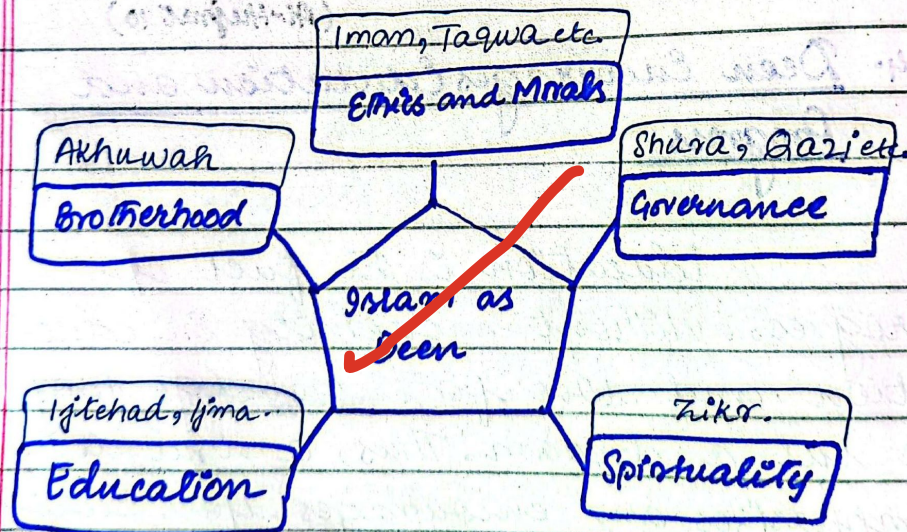 Iman, Taqwa etc.
Ethics and Morals
Akhuwah
Brotherhood
Shura, Qazi etc.
Governance
Islam as
Deen
Ijtehad, Ijma.
Education
Zikr.
Spirtuality